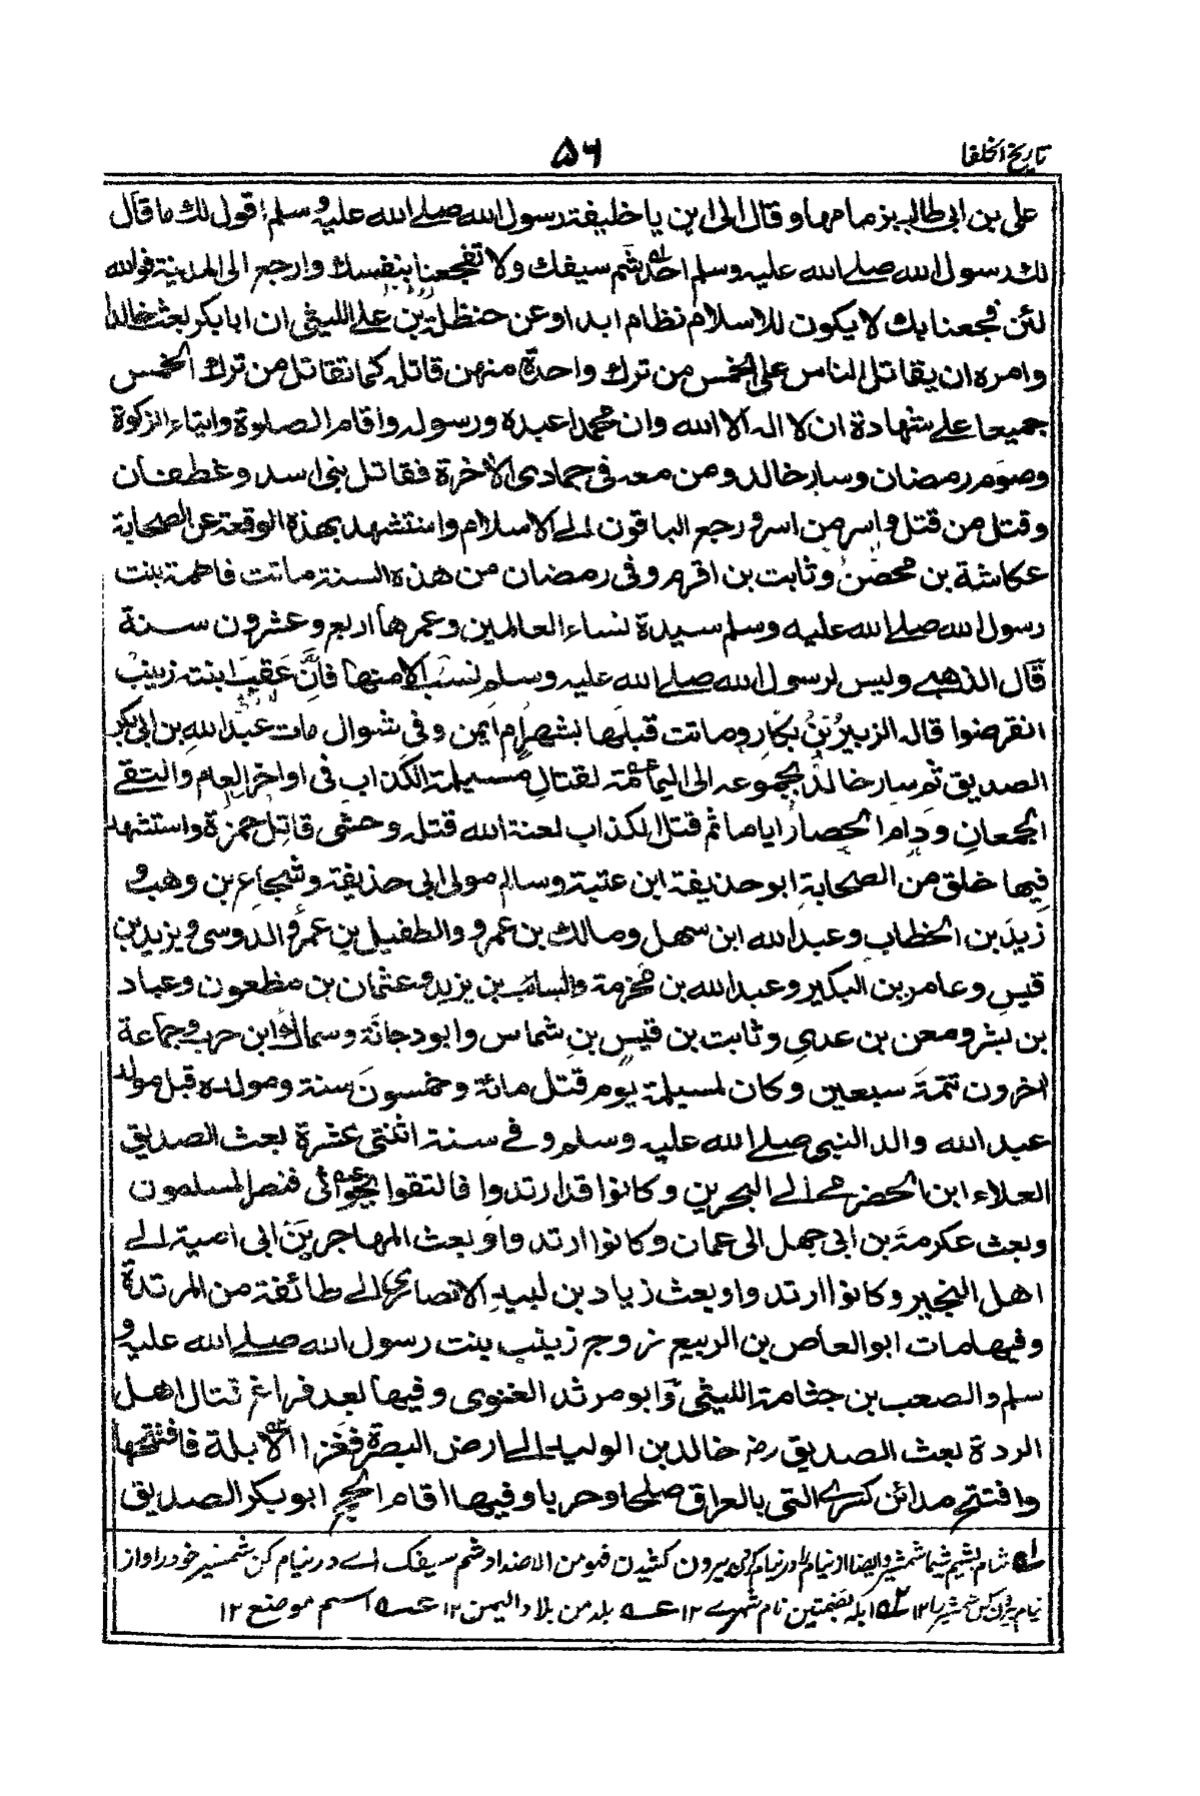 تاريخ الخلفا
۵۶
علی بن ابی طالب بزمامها وقال الی این یا خلیفة رسول الله صلے الله علیه و سلم اقول لك ما قال
لك رسول الله صلے الله علیه وسلم احد شم سیفك ولا تفجعنا بنفسك وارجع الی المدینة فوالله
لئن فجعنا بك لا یکون للاسلام نظام ابدا وعن حنظلة بن علے اللیثی ان ابا بکر بعث خالدا
وامره ان یقاتل الناس علی الخمس من ترك واحدة منهن قاتله کما تقاتل من ترك الخمس
جمیعا علے شهادة ان لا اله الا الله وان محمدا عبده ورسوله واقام الصلوة وایتاء الزکوة
وصوم رمضان وسار خالد ومن معه فی جمادی الاخرة فقاتل بنی اسد وغطفان
وقتل من قتل واسر من اسر ورجع الباقون الے الاسلام واستشهد بهذه الوقعة من الصحابة
عکاشة بن محصن وثابت بن اقرم وفی رمضان من هذه السنة ماتت فاطمة بنت
رسول الله صلے الله علیه وسلم سیدة نساء العالمین وعمرها اربع وعشرون سنة
قال الذهبے ولیس لرسول الله صلے الله علیه وسلم نسب الا منها فان عقب ابنته زینب
انقرضوا قاله الزبیر بن بکار وماتت قبلها بشهر ام ایمن وفی شوال مات عبد الله بن ابی بکر
الصدیق ثم سار خالد بجموعه الی الیمامة لقتال مسیلمة الکذاب فی اواخر العام والتقے
الجمعان ودام الحصار ایاما ثم قتل الکذاب لعنة الله قتله وحشی قاتل حمزة واستشهد
فیها خلق من الصحابة ابو حذیفة ابن عتبة وسالم مولی ابی حذیفة وشجاع بن وهب و
زید بن الخطاب وعبد الله ابن سهل ومالك بن عمرو والطفیل بن عمرو الدوسی ویزید بن
قیس وعامر بن البکیر وعبد الله بن مخرمة والسائب بن یزید وعثمان بن مظعون وعباد
بن بشر ومعن بن عدی وثابت بن قیس بن شماس وابو دجانة وسماك ابن حرب وجماعة
اخرون تتمة سبعین وکان لمسیلمة یوم قتل مائة وخمسون سنة ومولده قبل مولد
عبد الله والد النبی صلے الله علیه وسلم وفے سنة اثنتی عشرة بعث الصدیق
العلاء ابن الحضرمے الے البحرین وکانوا قد ارتدوا فالتقوا بجواثی فنصر المسلمون
وبعث عکرمة بن ابی جهل الی عمان وکانوا ارتدوا وبعث المهاجر بن ابی امیة الے
اهل النجیر وکانوا ارتدوا وبعث زیاد بن لبید الانصاری الے طائفة من المرتدة
وفیها مات ابو العاص بن الربیع زوج زینب بنت رسول الله صلے الله علیه و
سلم والصعب بن جثامة اللیثی وابو مرثد الغنوی وفیها بعد فراغ قتال اهل
الردة بعث الصدیق رضہ خالد بن الولید الے ارض البصرة فغزا الابلة فافتتحها
وافتتح مدائن کسرے التی بالعراق صلحا وحربا وفیها اقام الحج ابو بکر الصدیق
لہ شام یشیم شیما شمشیر از نیام بیرون کشیدن فهو من الاضداد شم سیفک اے در نیام کن شمشیر خود را واز
نیام بیرون کن شمشیر را ۱۲ لہ ابلہ بضمتین نام شہرے ۱۲ عہ بلد من بلاد الیمن ۱۲ عہ اسم موضع ۱۲